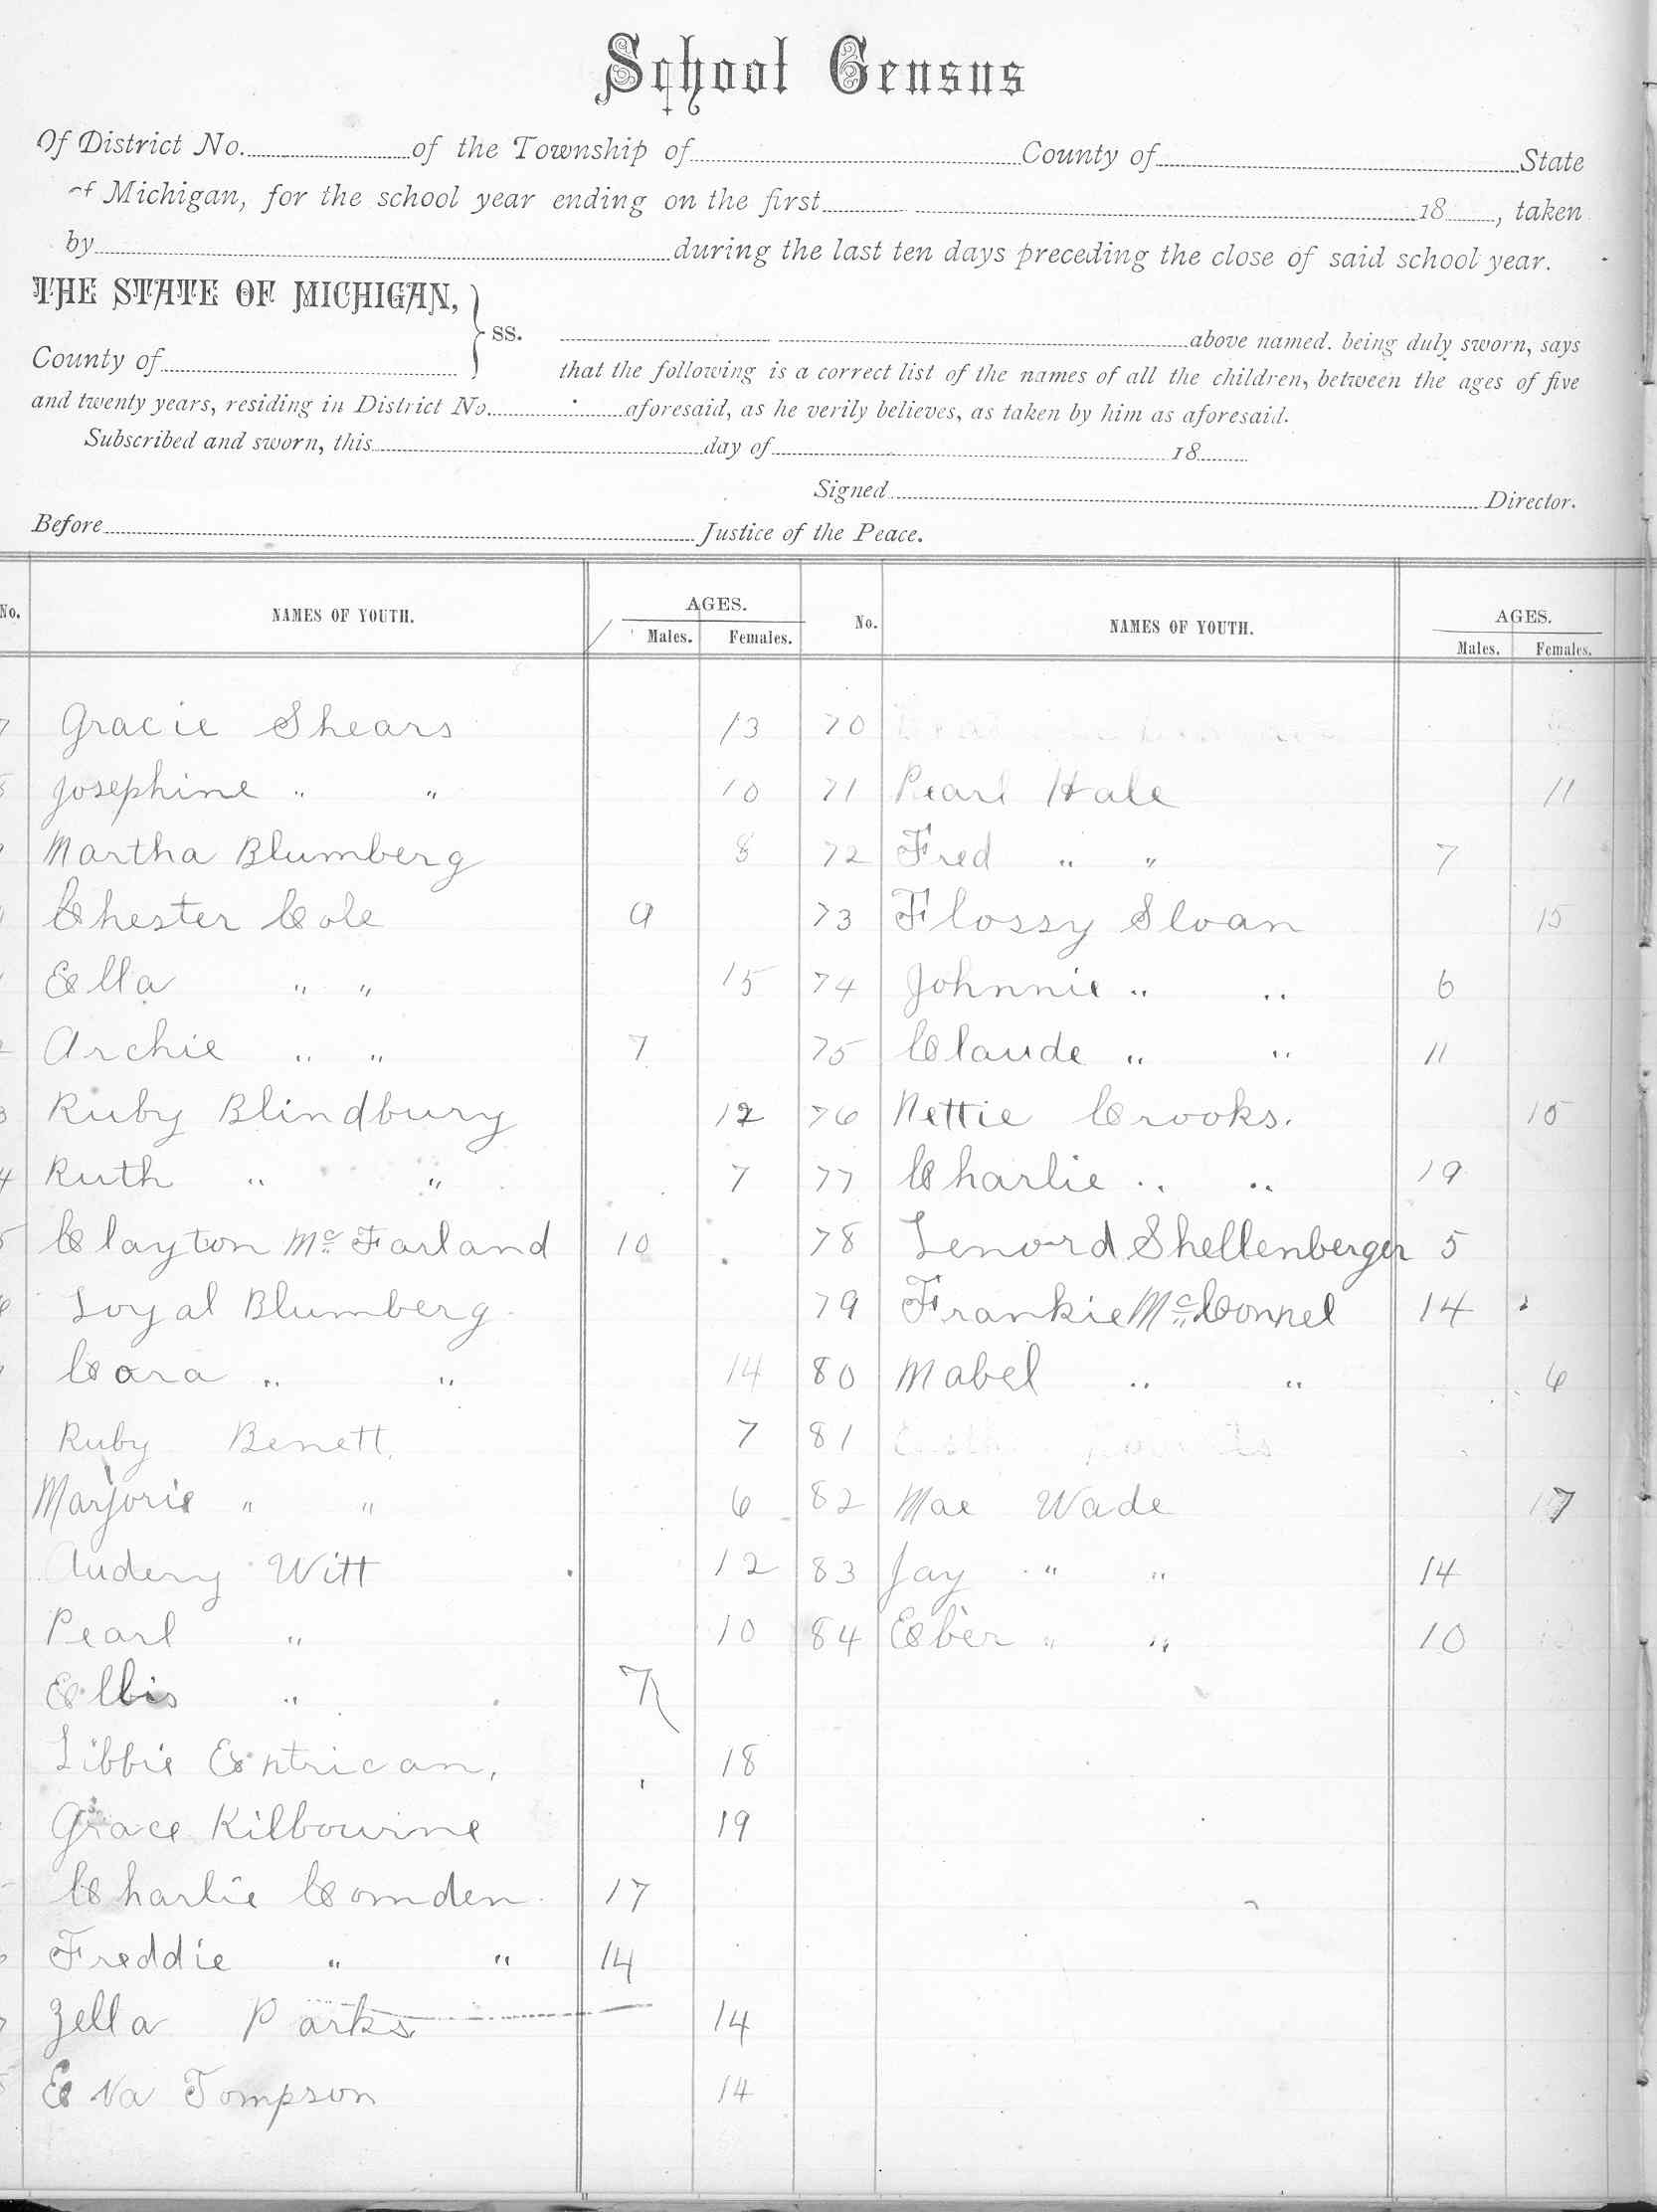 School Census
Of District No. of the Township of County of State
of Michigan, for the school year ending on the first 18 , taken
by during the last ten days preceding the close of said school year.
THE STATE OF MICHIGAN, } ss.
above named. being duly sworn, says
County of
that the following is a correct list of the names of all the children, between the ages of five
and twenty years, residing in District No. aforesaid, as he verily believes, as taken by him as aforesaid.
Subscribed and sworn, this day of 18
Signed Director.
Before Justice of the Peace.
No. NAMES OF YOUTH. AGES. Males. Females. No. NAMES OF YOUTH. AGES. Males. Females.
Gracie Shears 13 70
Josephine " " 10 71 Pearl Hale 11
Martha Blumberg 8 72 Fred " " 7
Chester Cole 9 73 Flossy Sloan 15
Ella " " 15 74 Johnnie " " 6
Archie " " 7 75 Claude " " 11
Ruby Blindbury 12 76 Nettie Crooks. 15
Ruth " " 7 77 Charlie " " 19
Clayton McFarland 10 78 Lenord Shellenberger 5
Loyal Blumberg 79 Frankie McConnel 14
Cora " " 14 80 Mabel " " 6
Ruby Benett 7 81
Marjorie " " 6 82 Mae Wade 17
Audery Witt 12 83 Jay " " 14
Pearl " 10 84 Eber " " 10
Ellis " 7
Libbie Entrican, 18
Grace Kilbourne 19
Charlie Comden 17
Freddie " " 14
Zella Parks 14
Eva Tompson 14